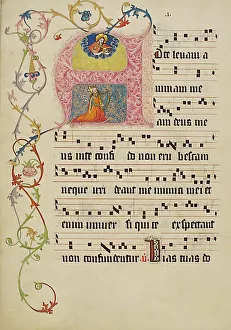 A Dte leuaui a
nimam me
am deus me
us inte confi do non eru bescam
neque irri deant me inimici mei et
enim uniuer si qui te expectant
non confundentur V Uias tuas do